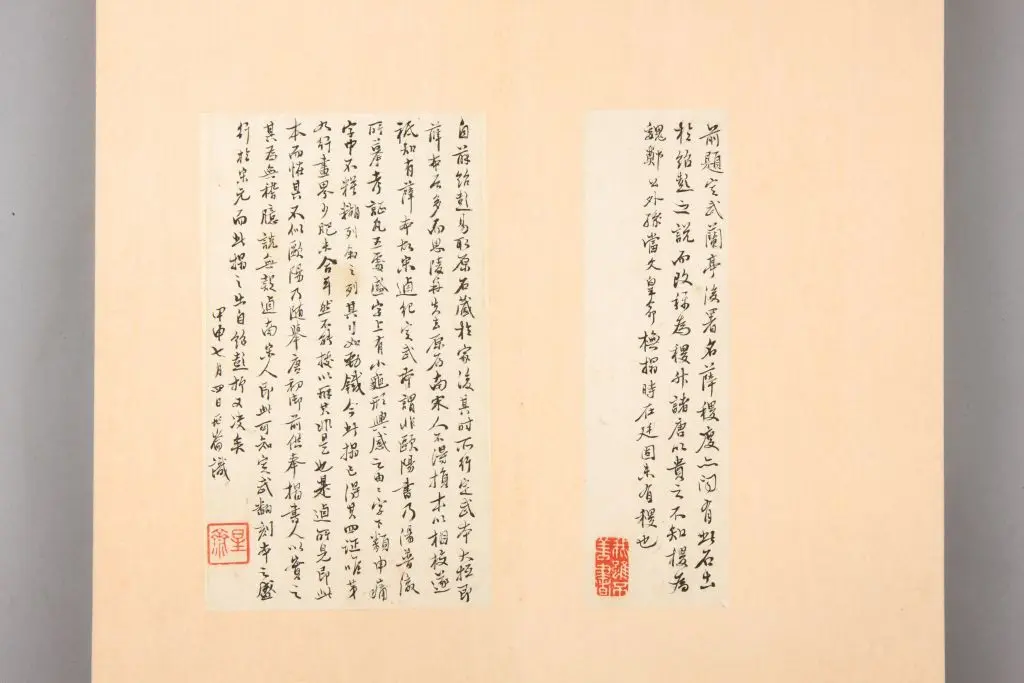 前題定武蘭亭後署名薛稷虞亦間有此石出
於紹彭之說而改稱為稷升諸唐以貴之不知稷為
魏鄭公外孫當文皇命橅搨時在廷固未有稷也
自薛紹彭易取原石藏於家後其時所行定武本大抵即
薛本為多而思陵再失去原石南宋人不得損本以相校遂
祗知有薛本故宋逌紀定武有謂非歐陽書乃湯普澈
所摹考証凡五處盛字上有小龜形興感之由之字下類申痛
字中不模糊列敘之列其刂如勁鐵今此搨已得其四証唯第
九行畫界少肥未合耳然不能援以辨其非是也是逌所見即此
本而怪其不似歐陽乃隨舉唐初御前供奉搨書人以實之
其為無稽臆說無疑逌南宋人即此可知定武翻刻本之盛
行於宋元而此搨之出自紹彭抑又决矣
甲申七月四日識